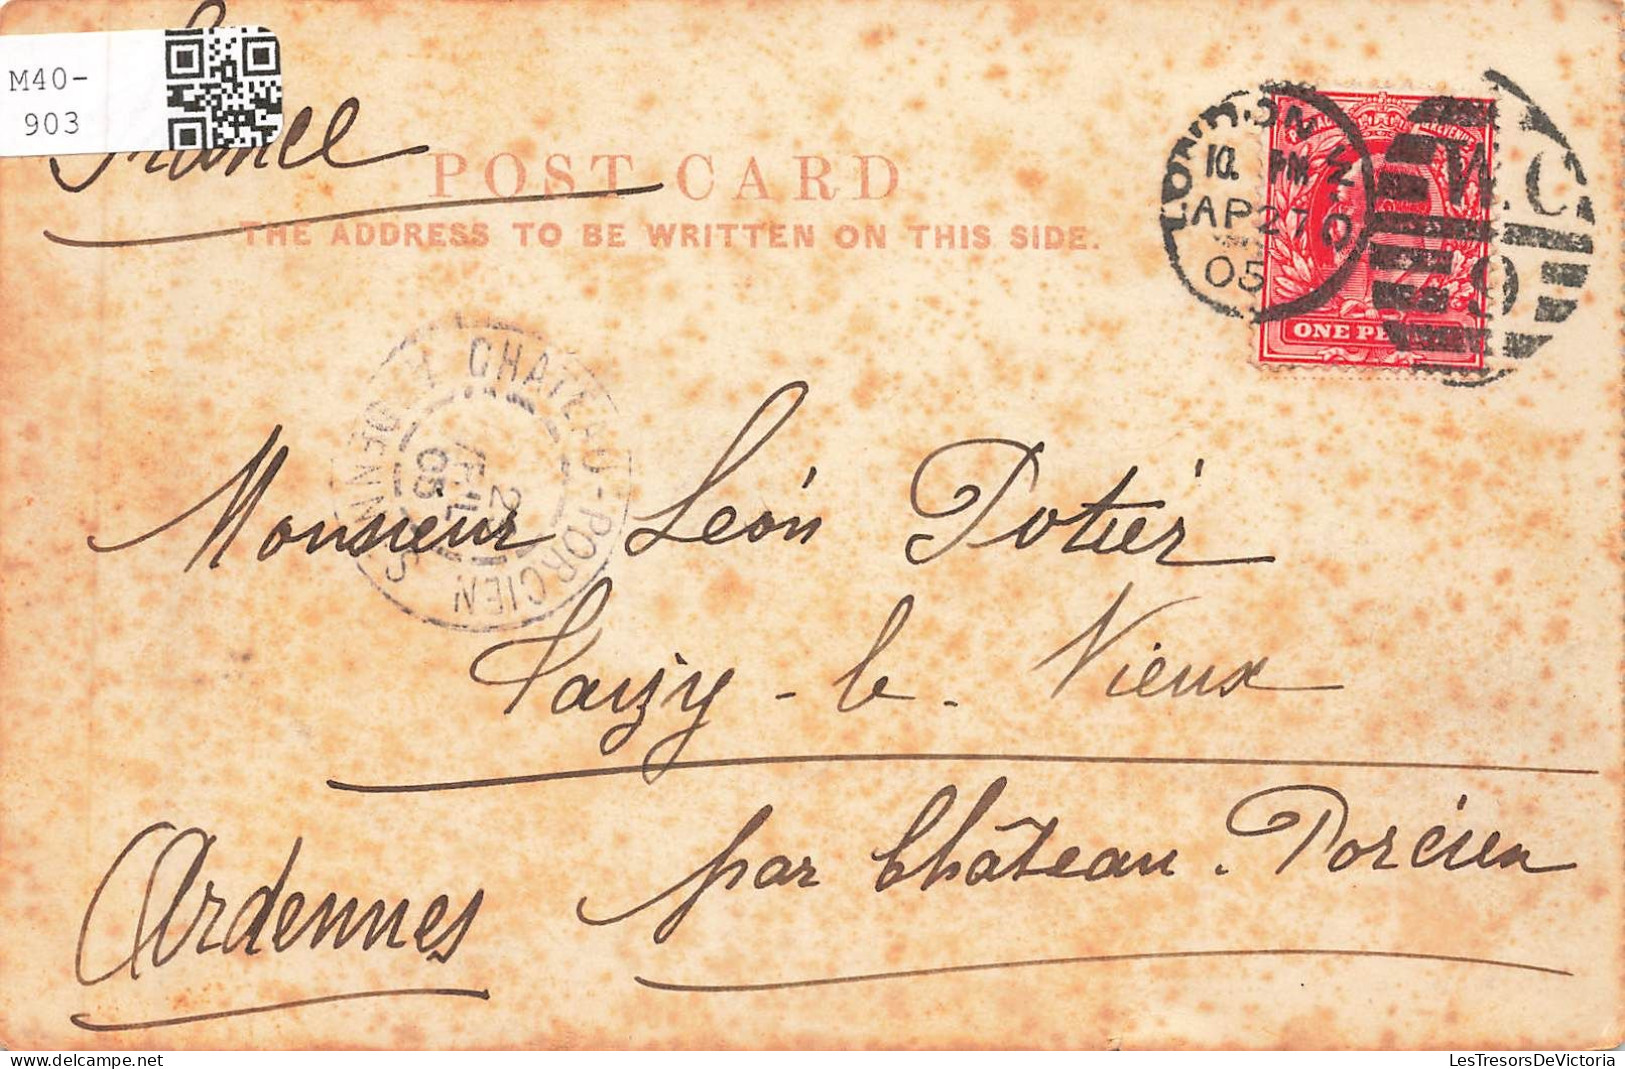 M40-
903
France
POST CARD
THE ADDRESS TO BE WRITTEN ON THIS SIDE.
LONDON W.C
10. PM
AP 27
05
W.C
9
ONE PE
CHATEAU-PORCIEN
ARDENNES
05
Monsieur Léon Potier
Taizy-le-Vieux
par Château-Porcien
Ardennes
LesTresorsDeVictoria